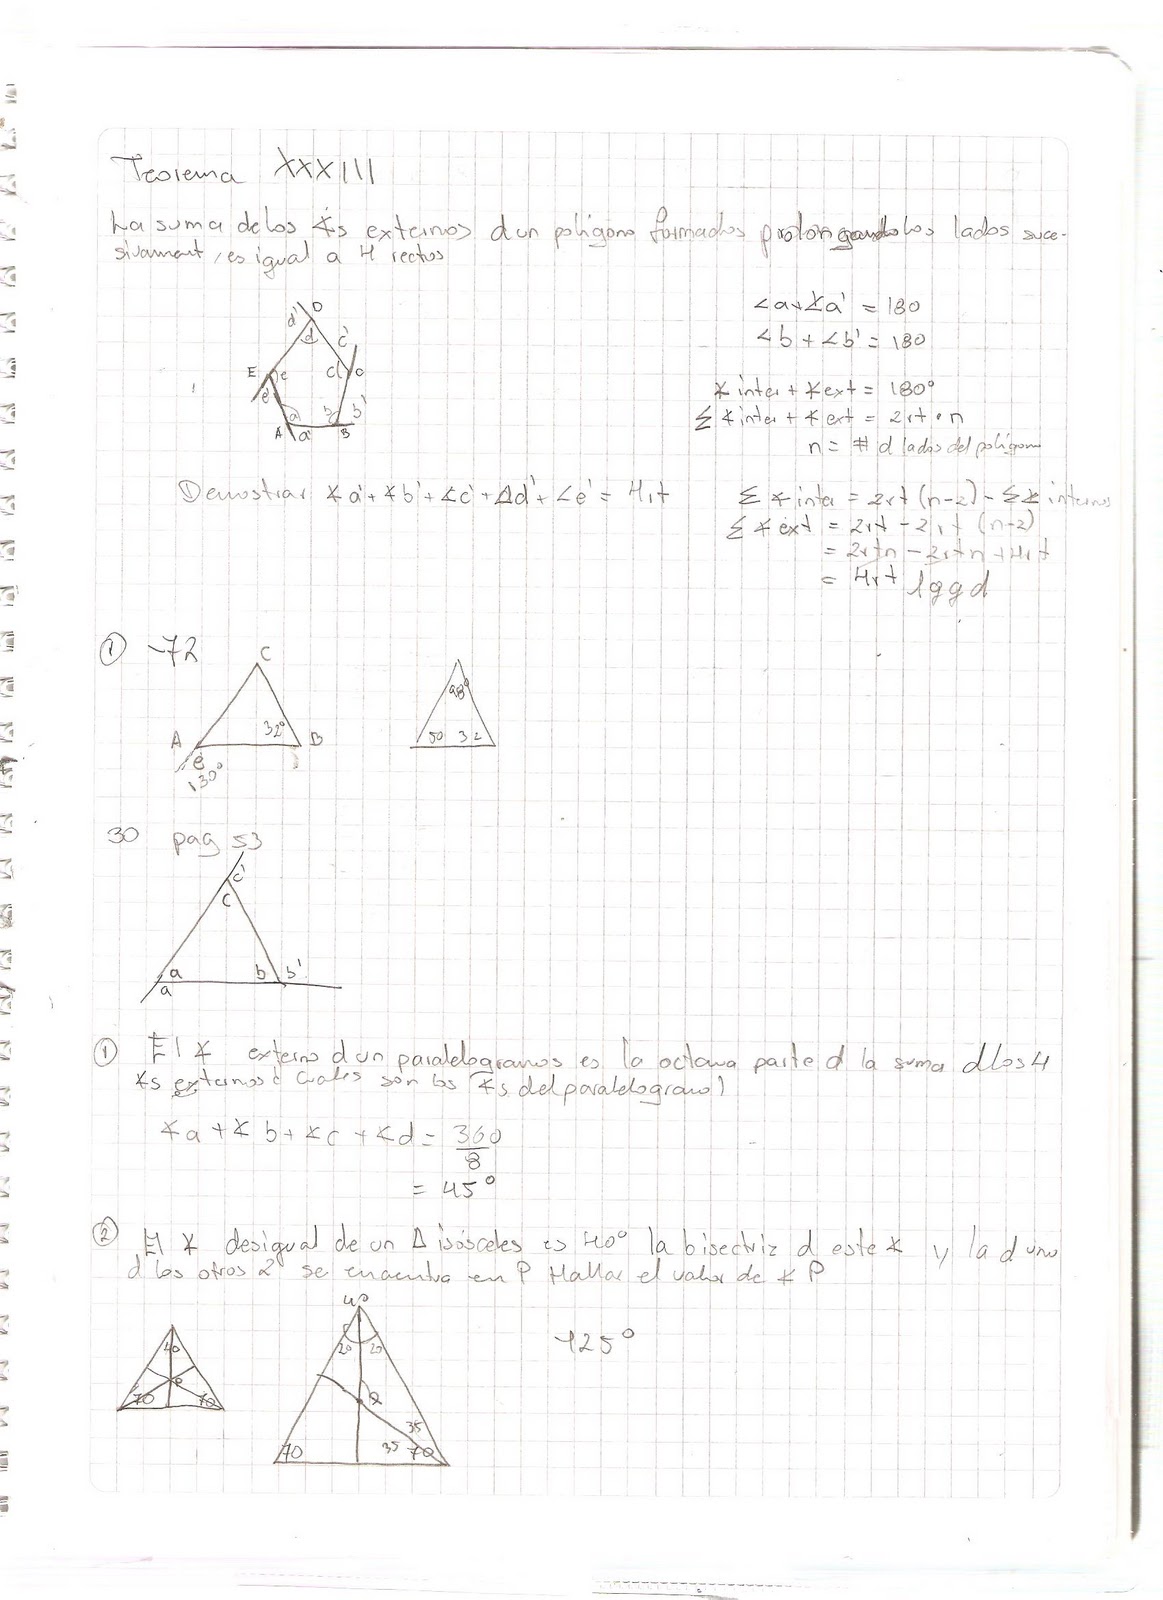 Teorema XXXIII
La suma de los ∡s externos d un polígono formados prolongando los lados suce-
sivament, es igual a 4 rectos
∠a+∡a' = 180
∠b+∠b' = 180
D
d'
d
c'
E
e
c
C
e'
a
b
b'
A
a'
B
∡inter + ∡ext = 180°
Σ∡inter + ∡ext = 2rt·n
n = # d lados del polígono
Demostrar ∡a'+∡b'+∠c'+∆d'+∠e' = 4rt
Σ∡inter = 2rt(n-2) - Σ∡internos
Σ∡ext = 2rt - 2rt (n-2)
= 2rtn - 2rtn + 4rt
= 4rt lqqd
① -72
C
A
32°
B
e
130°
98°
50
32
30 pag 53
c'
c
a
b
b'
a
① El ∡ externo d un paralelogramos es la octava parte d la suma d los 4
∡s externos ¿ cuales son los ∡s del paralelogramo)
∡a + ∡b + ∡c + ∡d = 360
8
= 45°
② El ∡ desigual de un ∆ isósceles es 40° la bisectriz d este ∡ y la d uno
d los otros 2 se encuentra en P Hallar el valor de ∡P
40
P
70
70
40
20
20
35
35
70
70
125°